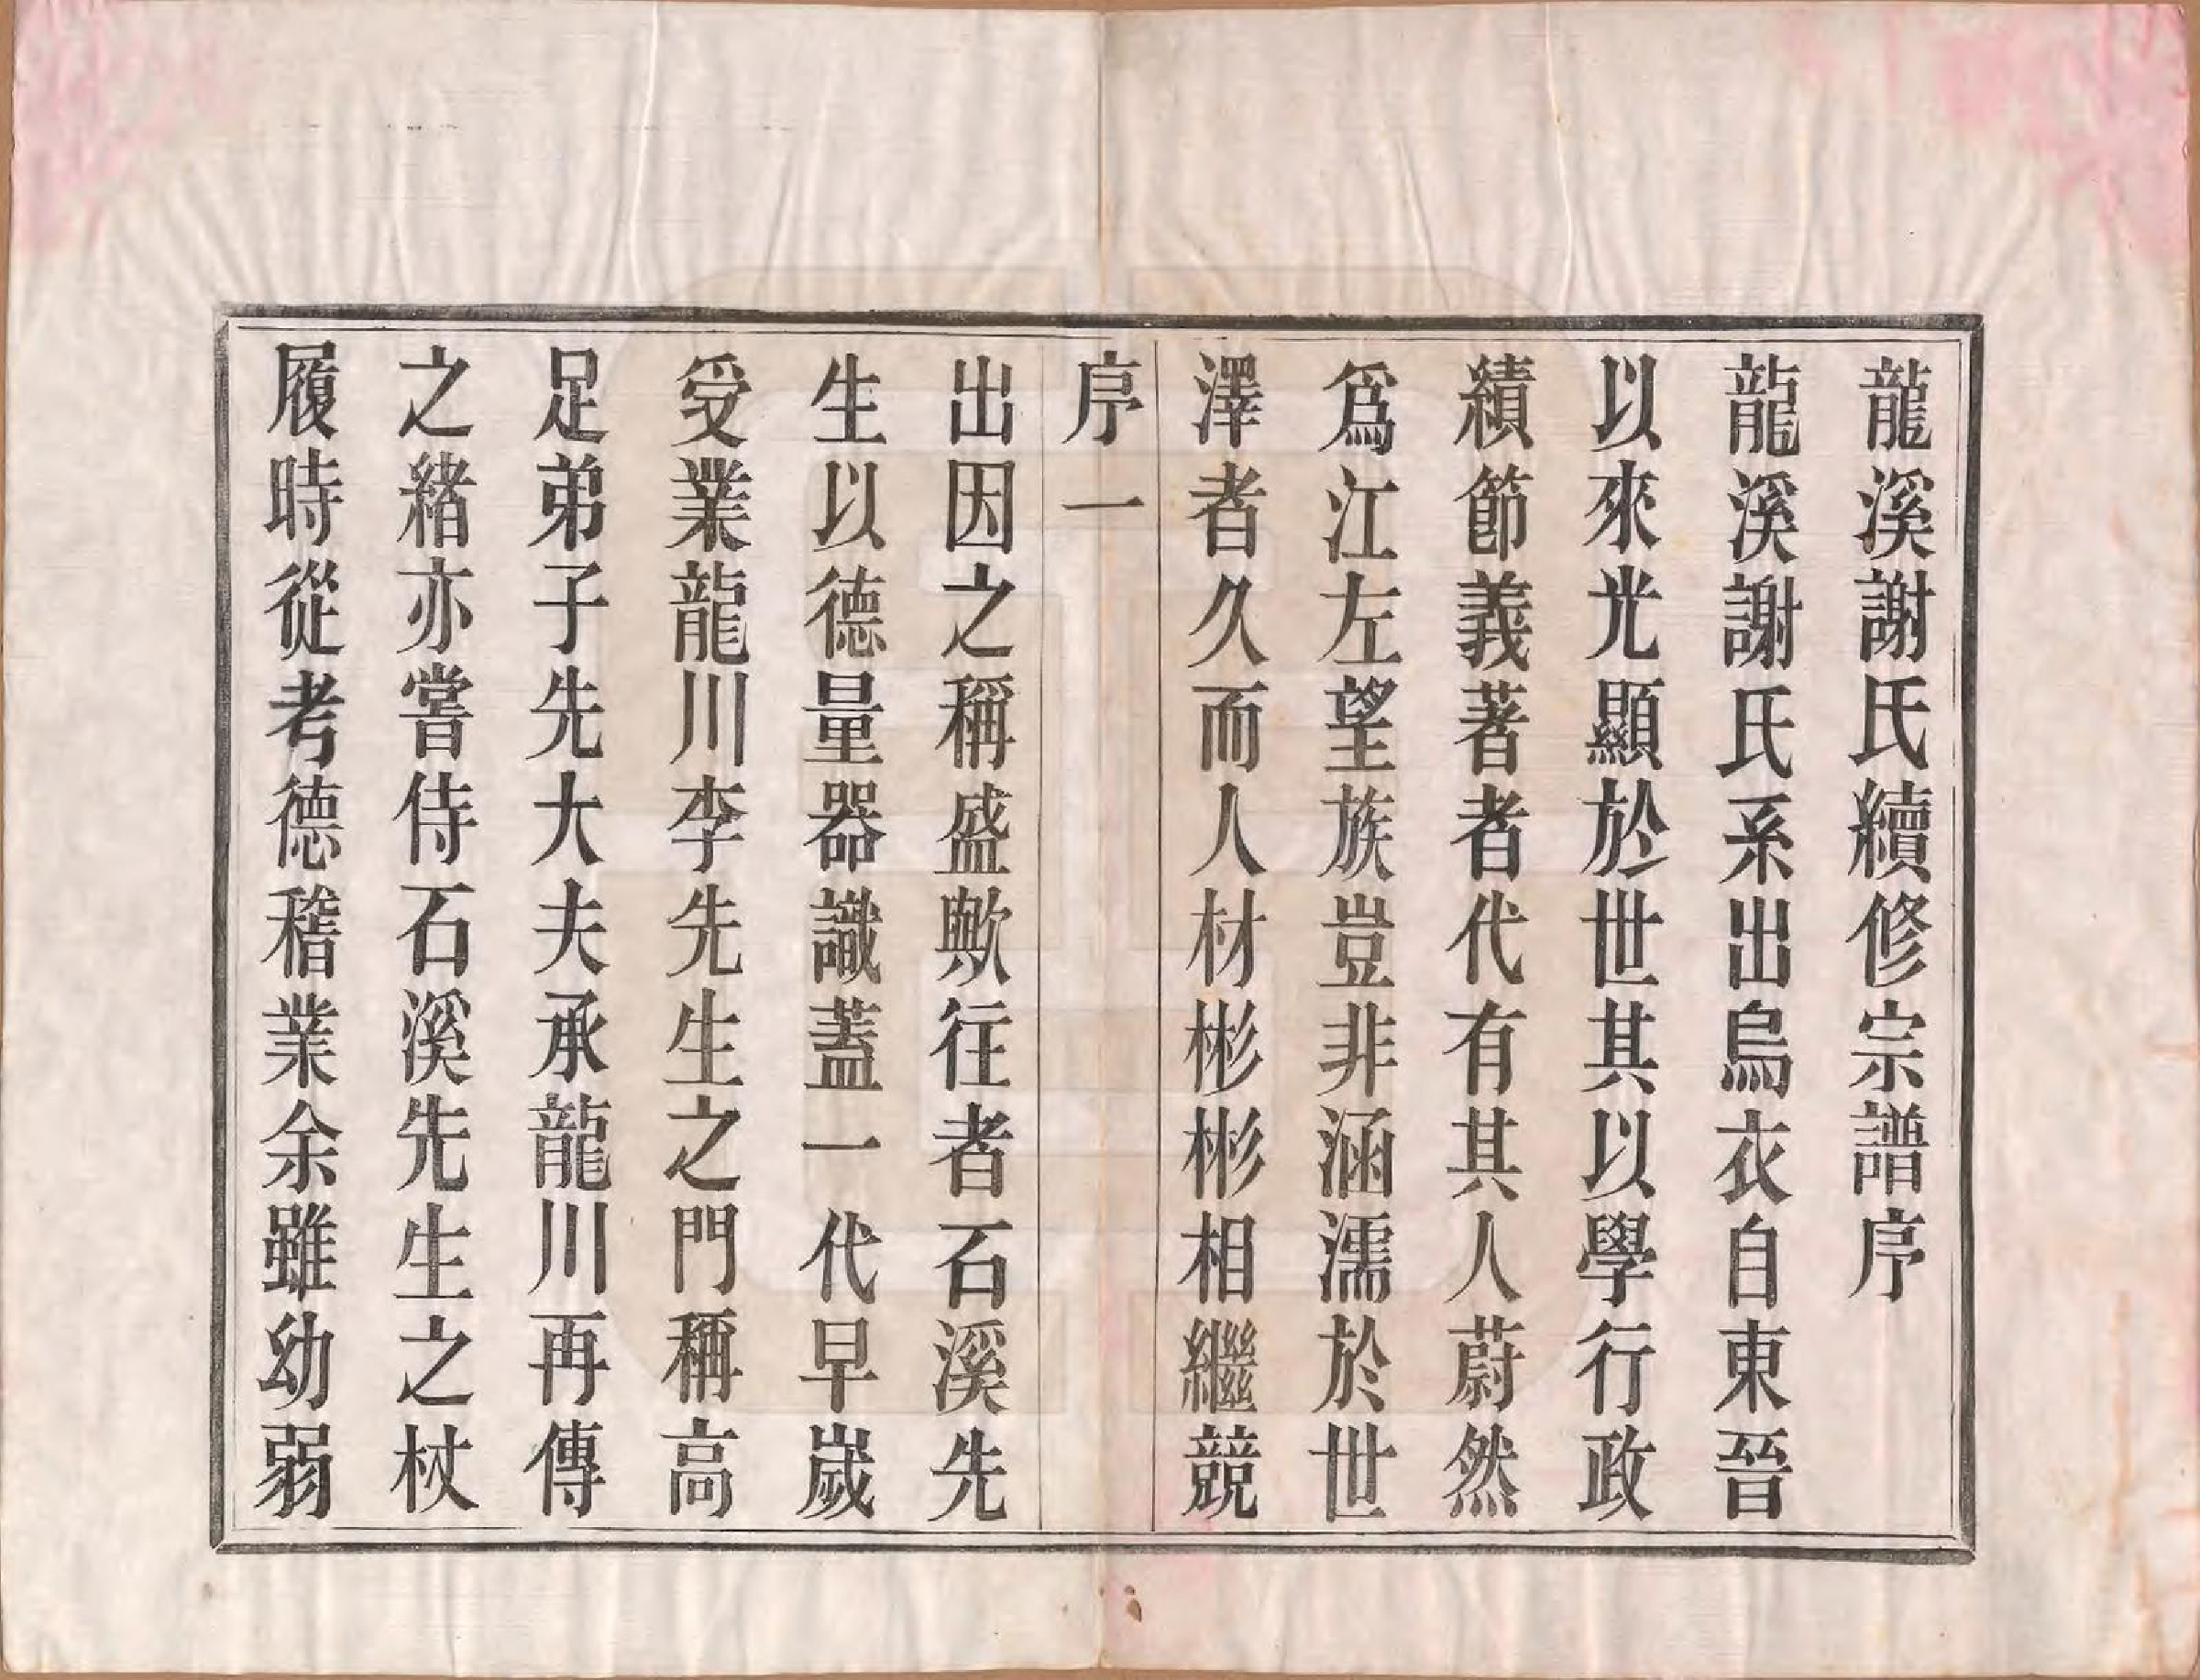 龍溪謝氏續修宗譜序
龍溪謝氏系出烏衣自東晉
以來光顯於世其以學行政
績節義著者代有其人蔚然
爲江左望族豈非涵濡於世
澤者久而人材彬彬相繼競
序一
出因之稱盛歟往者石溪先
生以德量器識蓋一代早歲
受業龍川李先生之門稱高
足弟子先大夫承龍川再傳
之緒亦嘗侍石溪先生之杖
履時從考德稽業余雖幼弱